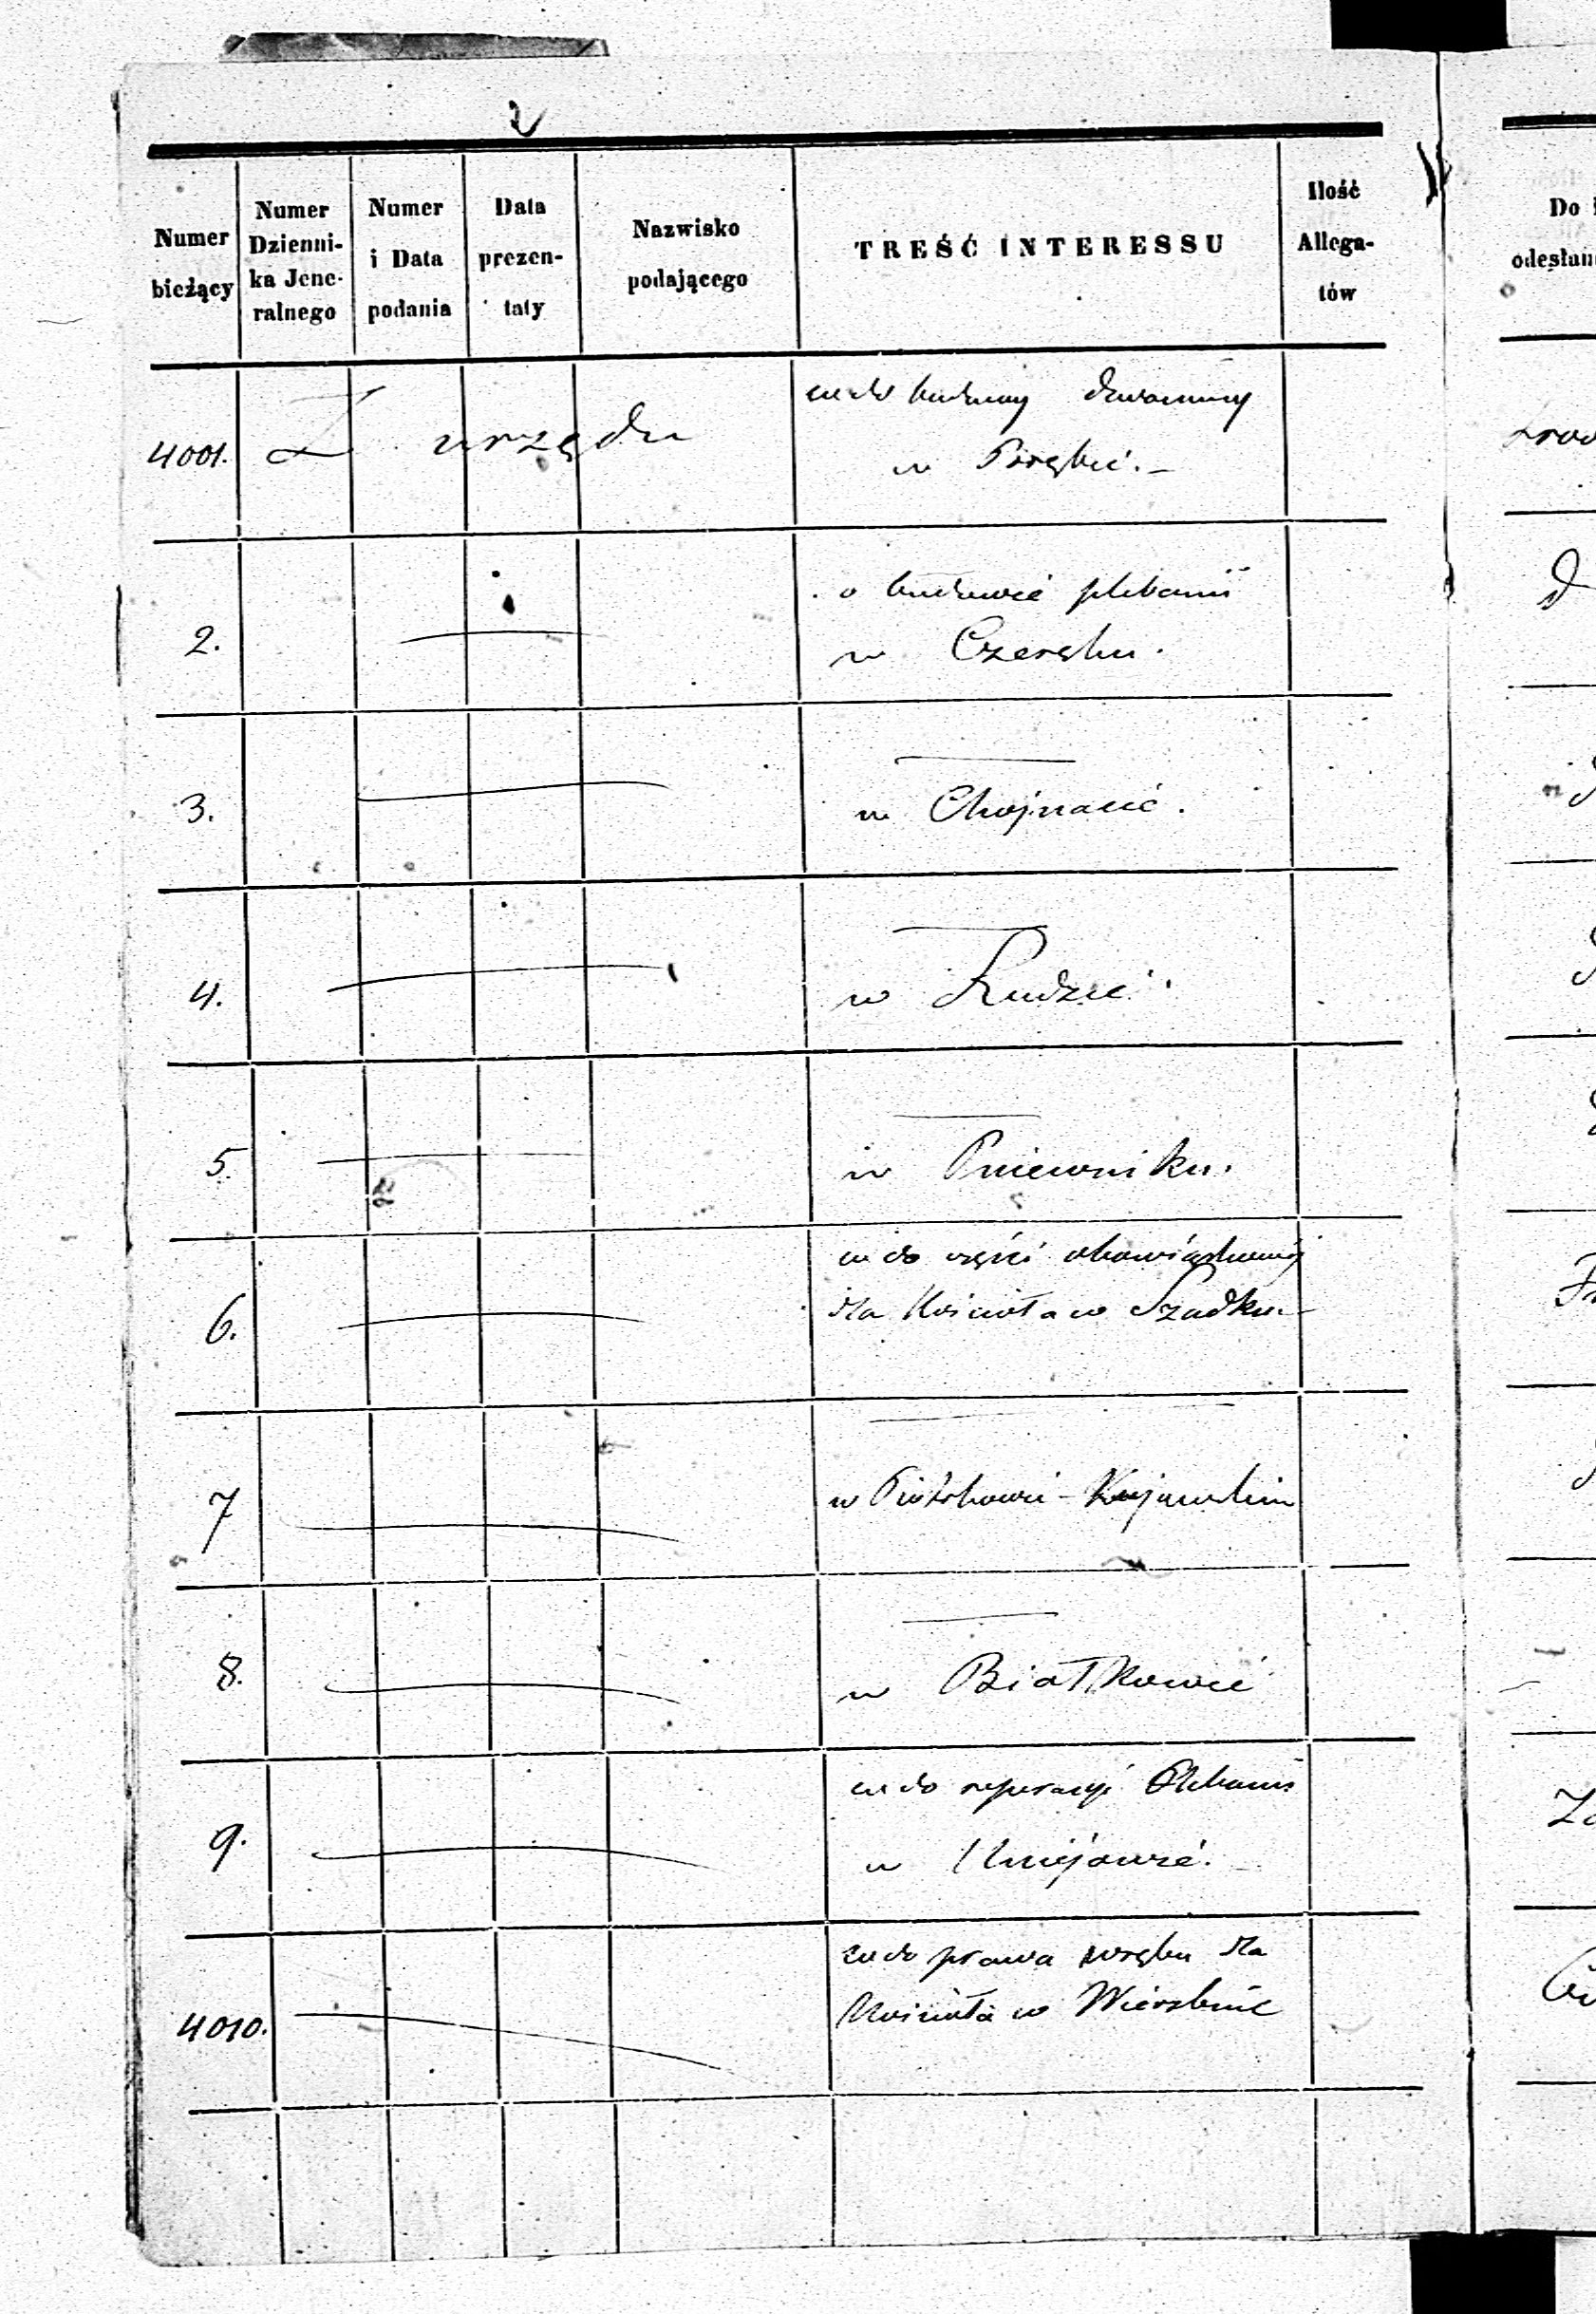 2
Numer bieżący
Numer Dzienni- ka Jene- ralnego
Numer i Data podania
Data prezen- taty
Nazwisko podającego
TREŚĆ INTERESSU
Ilość Allega- tów
Do
odesłan
4001. Z urzędu co do budowy dzwonnicy
w Porębie.-
2. o budowie plebanii
w Czerębu.
3. w Chojnacie.
4. w Rudzie.
5 w Pniewniku.
6. co do części obowiązkowej
dla Kościoła w Szadku.-
7 w Piotrkowie-Kujawskim
8. w Białkowie
9. co do reperacyi Plebanii
w Kniejówce.
4010. co do prawa wrębu dla
Kościoła w Wierzbnie